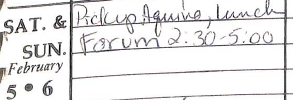 SAT. & Pickup Aquino, lunch
SUN. Forum 2:30-5:00
February
5 • 6